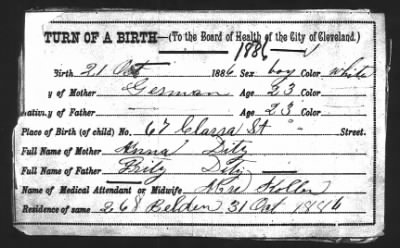 TURN OF A BIRTH—(To the Board of Health of the City of Cleveland.)
1886
Birth, 21 Oct 1886 Sex boy Color white
y of Mother German Age 23
ationality of Father — Age 23
Place of Birth (of child) No. 67 Clarra St " Street.
Full Name of Mother Anna Ditz
Full Name of Father Fritz Ditz
Name of Medical Attendant or Midwife,
Residence of same 268 Belden 31 Oct 1886